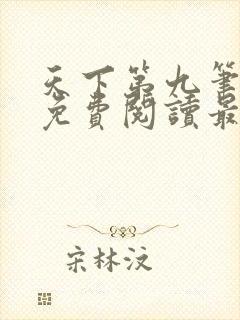 天下第九筆
免費閱讀最
宋林汶